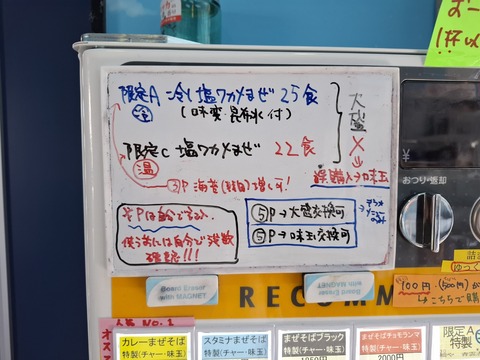 お一
1杯以
限定A 冷し塩ワカメまぜ 25食
冷 (味変 昆布水付)
限定C 塩ワカメまぜ 22食
温
③P 海苔(韓国)増し可!
大盛
×
誤購入→味玉
※Pは自分で
使う前には自分で
確認!!!
⑤P→大盛交換可
⑤P→味玉交換可
Board Eraser
with MAGNET
Board Eraser
with MAGNET
¥
おつり・返却
RECOMM
ゆっく
100円
こちらで購
人気 No.1
オス
カレーまぜそば
特製(チャー・味玉)
スタミナまぜそば
特製(チャー・味玉)
まぜそばブラック
特製(チャー・味玉)
1850円
まぜそばチョモランマ
特製(チャー・味玉)
2000円
限定A
特製